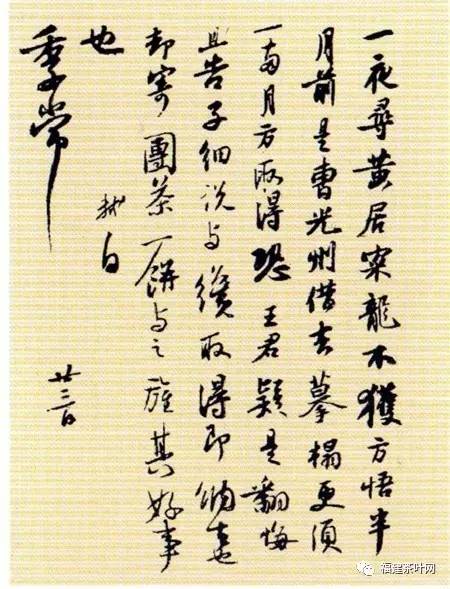 一夜尋黃居寀龍不獲方悟半
月前是曹光州借去摹榻更須
一兩月方取得恐王君疑是翻悔
且告子細說與纔取得即納去也
却寄團茶一餅與之旌其好事
也
軾白
季常
廿三日
福建茶叶网